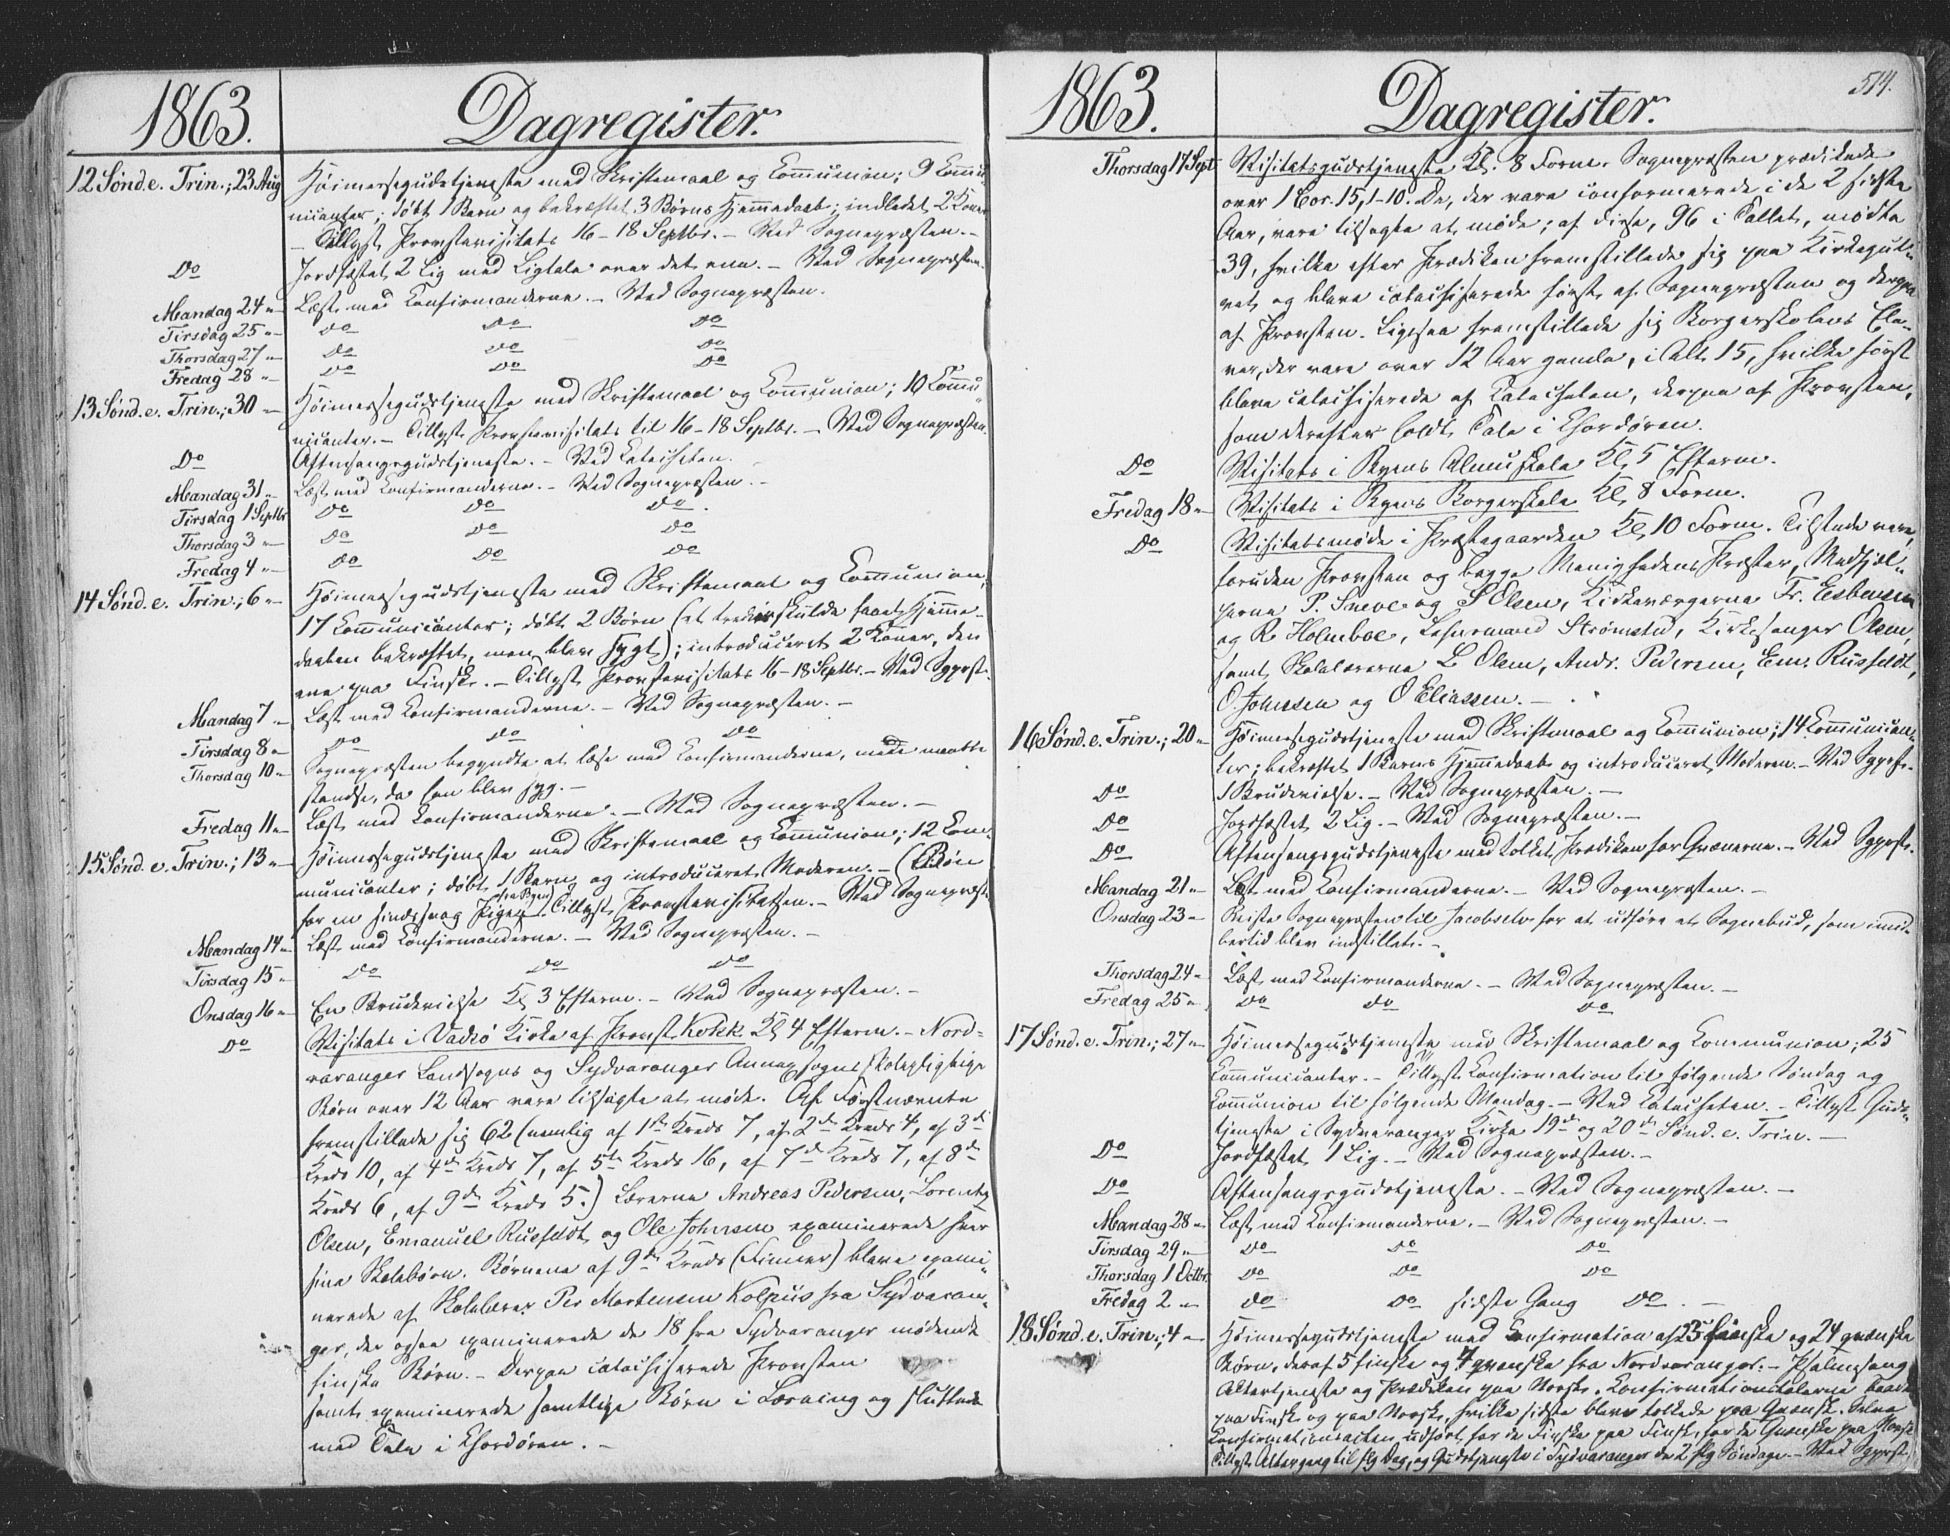 1863.
Dagregister.
12 Sønd. e. Trin.; 23 Aug Høimessegudstjeneste med Skriftemaal og Communion; 9 Commu-
nicanter; døbt 1 Barn og bekræftet 3 Børns Hjemmedaab; indledet 2 Koner
– Tillyst Provstevisitats 16–18 Septbr. – Ved Sognepræsten. –
Do Jordfæstet 2 Lig med Ligtale over det ene. – Ved Sognepræsten.
Mandag 24 „ Læst med Confirmanderne. – Ved Sognepræsten.
Tirsdag 25 „ Do Do Do
Thorsdag 27 „ Do Do Do
Fredag 28 „ Do Do Do
13 Sønd. e. Trin.; 30 „ Høimessegudstjeneste med Skriftemaal og Communion; 10 Commu-
nicanter. – Tillyst Provstevisitats til 16–18 Septbr. – Ved Sognepræsten.
Do Aftensangsgudstjeneste. – Ved Catecheten.
Mandag 31 „ Læst med Confirmanderne. – Ved Sognepræsten. –
Tirsdag 1 Septbr Do Do Do.
Thorsdag 3 „ Do Do Do
Fredag 4 „ Do Do Do
14 Sønd. e. Trin.; 6 „ Høimessegudstjeneste med Skriftemaal og Communion,
17 Communicanter; døbt 2 Børn (et tredie skulde faaet Hjemme-
daaben bekræftet, men blev sygt); introduceret 2 Koner, den
ene paa Finsk. – Tillyst Provstevisitats 16–18 Septbr. – Ved Sgprst.
Mandag 7 „ Læst med Confirmanderne. – Ved Sognepræsten. –
Tirsdag 8 „ Do Do Do
Thorsdag 10 „ Sognepræsten begyndte at læse med Confirmanderne, maatte
standse, da han blev syg. –
Fredag 11 „ Læst med Confirmanderne. – Ved Sognepræsten. –
15 Sønd. e. Trin.; 13 „ Høimessegudstjeneste med Skriftemaal og Communion; 12 Com-
municanter; døbt 1 Barn og introduceret Moderen. – (Bøn
for en sindssvag Pige) Tillyst Provstevisitatsen. – Ved Sognepræst.
Mandag 14 „ Læst med Confirmanderne. – Ved Sognepræsten. –
Tirsdag 15 „ Do Do Do
Onsdag 16 „ En Brudevielse Kl 3 Efterm. – Ved Sognepræsten. –
Do Visitats i Vadsø Kirke af Provst Kolck Kl 4 Efterm. – Nord-
varanger Landsogns og Sydvaranger Annexsogns skolepligtige
Børn over 12 Aar vare tilsagte at møde. Af Førstnævnte
fremstillede sig 62 (nemlig af 1ste Kreds 7, af 2den Kreds 4, af 3die
Kreds 10, af 4de Kreds 7, af 5te Kreds 16, af 7de Kreds 7, af 8de
Kreds 6, af 9de Kreds 5.) Lærerne Andreas Pedersen, Lorentz
Olsen, Emanuel Rusfeldt og Ole Johnsen examinerede hver
sine Skolebørn. Børnene af 9de Kreds (Finner) bleve exami-
nerede af Skolelærer Per Mortensen Kolpus fra Sydvaran-
ger, der ogsaa examinerede de 18 fra Sydvaranger mødende
finske Børn. – Derpaa catechiserede Provsten
samt examinerede samtlige Børn i Læsning og sluttede
med Tale i Chordøren. –
1863.
Dagregister.
514.
Thorsdag 17 Sept Visitatsgudstjeneste Kl. 8 Form. Sognepræsten prædikede
over 1 Cor. 15, 1–10. De, der vare confirmerede i de 2 sidste
Aar, vare tilsagte at møde; af disse, 96 i Tallet, mødte
39, hvilke efter Prædiken fremstillede sig paa Kirkegul-
vet og bleve catechiserede først af Sognepræsten og derpaa
af Provsten. Ligesaa fremstillede sig Borgerskolens Ele-
ver, der vare over 12 Aar gamle, i Alt 15, hvilke først
bleve catechiserede af Catecheten, derpaa af Provsten,
som derefter holdt Tale i Chordøren.
Do Visitats i Byens Almuskole Kl 5 Efterm.
Fredag 18 „ Visitats i Byens Borgerskole Kl 8 Form.
Do Visitatsmøde i Præstegaarden Kl 10 Form. Tilstede vare,
foruden Provsten og begge Menighedens Præster, Medhjæl-
perne P. Sneve og S Olsen, Kirkeværgerne Fr. Esbensen
og R. Holmboe, Lehnsmand Strømsted, Kirkesanger Olsen
samt Skolelærerne L Olsen, Andr. Pedersen, Em. Rusfeldt,
O. Johnssen og O Eliassen. –
16 Sønd. e. Trin.; 20 „ Høimessegudstjeneste med Skriftemaal og Communion; 14 Communican-
ter; bekræftet 1 Barns Hjemmedaab og introduceret Moderen. – Ved Sgprst.
Do 1 Brudevielse. – Ved Sognepræsten. –
Do Jordfæstet 2 Lig. – Ved Sognepræsten. –
Do Aftensangsgudstjeneste med tolket Prædiken for Qvænerne. – Ved Sgprst.
Mandag 21 „ Læst med Confirmanderne. – Ved Sognepræsten. –
Onsdag 23 „ Reiste Sognepræsten til Jacobselv for at udføre et Sognebud, som imid-
lertid blev indstillet. –
Thorsdag 24 „ Læst med Confirmanderne. – Ved Sognepræsten. –
Fredag 25 „ Do Do Do
17 Sønd. e. Trin.; 27 „ Høimessegudstjeneste med Skriftemaal og Communion; 25
Communicanter. – Tillyst Confirmation til følgende Søndag og
Communion til følgende Mandag. – Ved Catecheten. – Tillyst Guds-
tjeneste i Sydvaranger Kirke 19de og 20de Sønd. e. Trin. –
Do Jordfæstet 1 Lig. – Ved Sognepræsten. –
Do Aftensangsgudstjeneste. – Ved Sognepræsten. –
Mandag 28 „ Læst med Confirmanderne. – Ved Sognepræsten. –
Tirsdag 29 „ Do Do Do
Thorsdag 1 Octbr. Do Do Do
Fredag 2 „ Do Do sidste Gang Do. –
18 Sønd. e. Trin.; 4 „ Høimessegudstjeneste med Confirmation af 25 finske og 24 qvænske
Børn, deraf 5 finske og 7 qvænske fra Nordvaranger. – Psalmesang
Altertjeneste og Prædiken paa Norsk. Confirmationstalerne baade
paa Finsk og paa Norsk, hvilke sidste bleve tolkede paa Qvænsk. Selve
Confirmationsacten udført for de Finske paa Finsk, for de Qvænske paa Norsk
Tillyst Altergang til flg Dag, og Gudstjeneste i Sydvaranger de 2 flg Søndage. – Ved Sgprst.